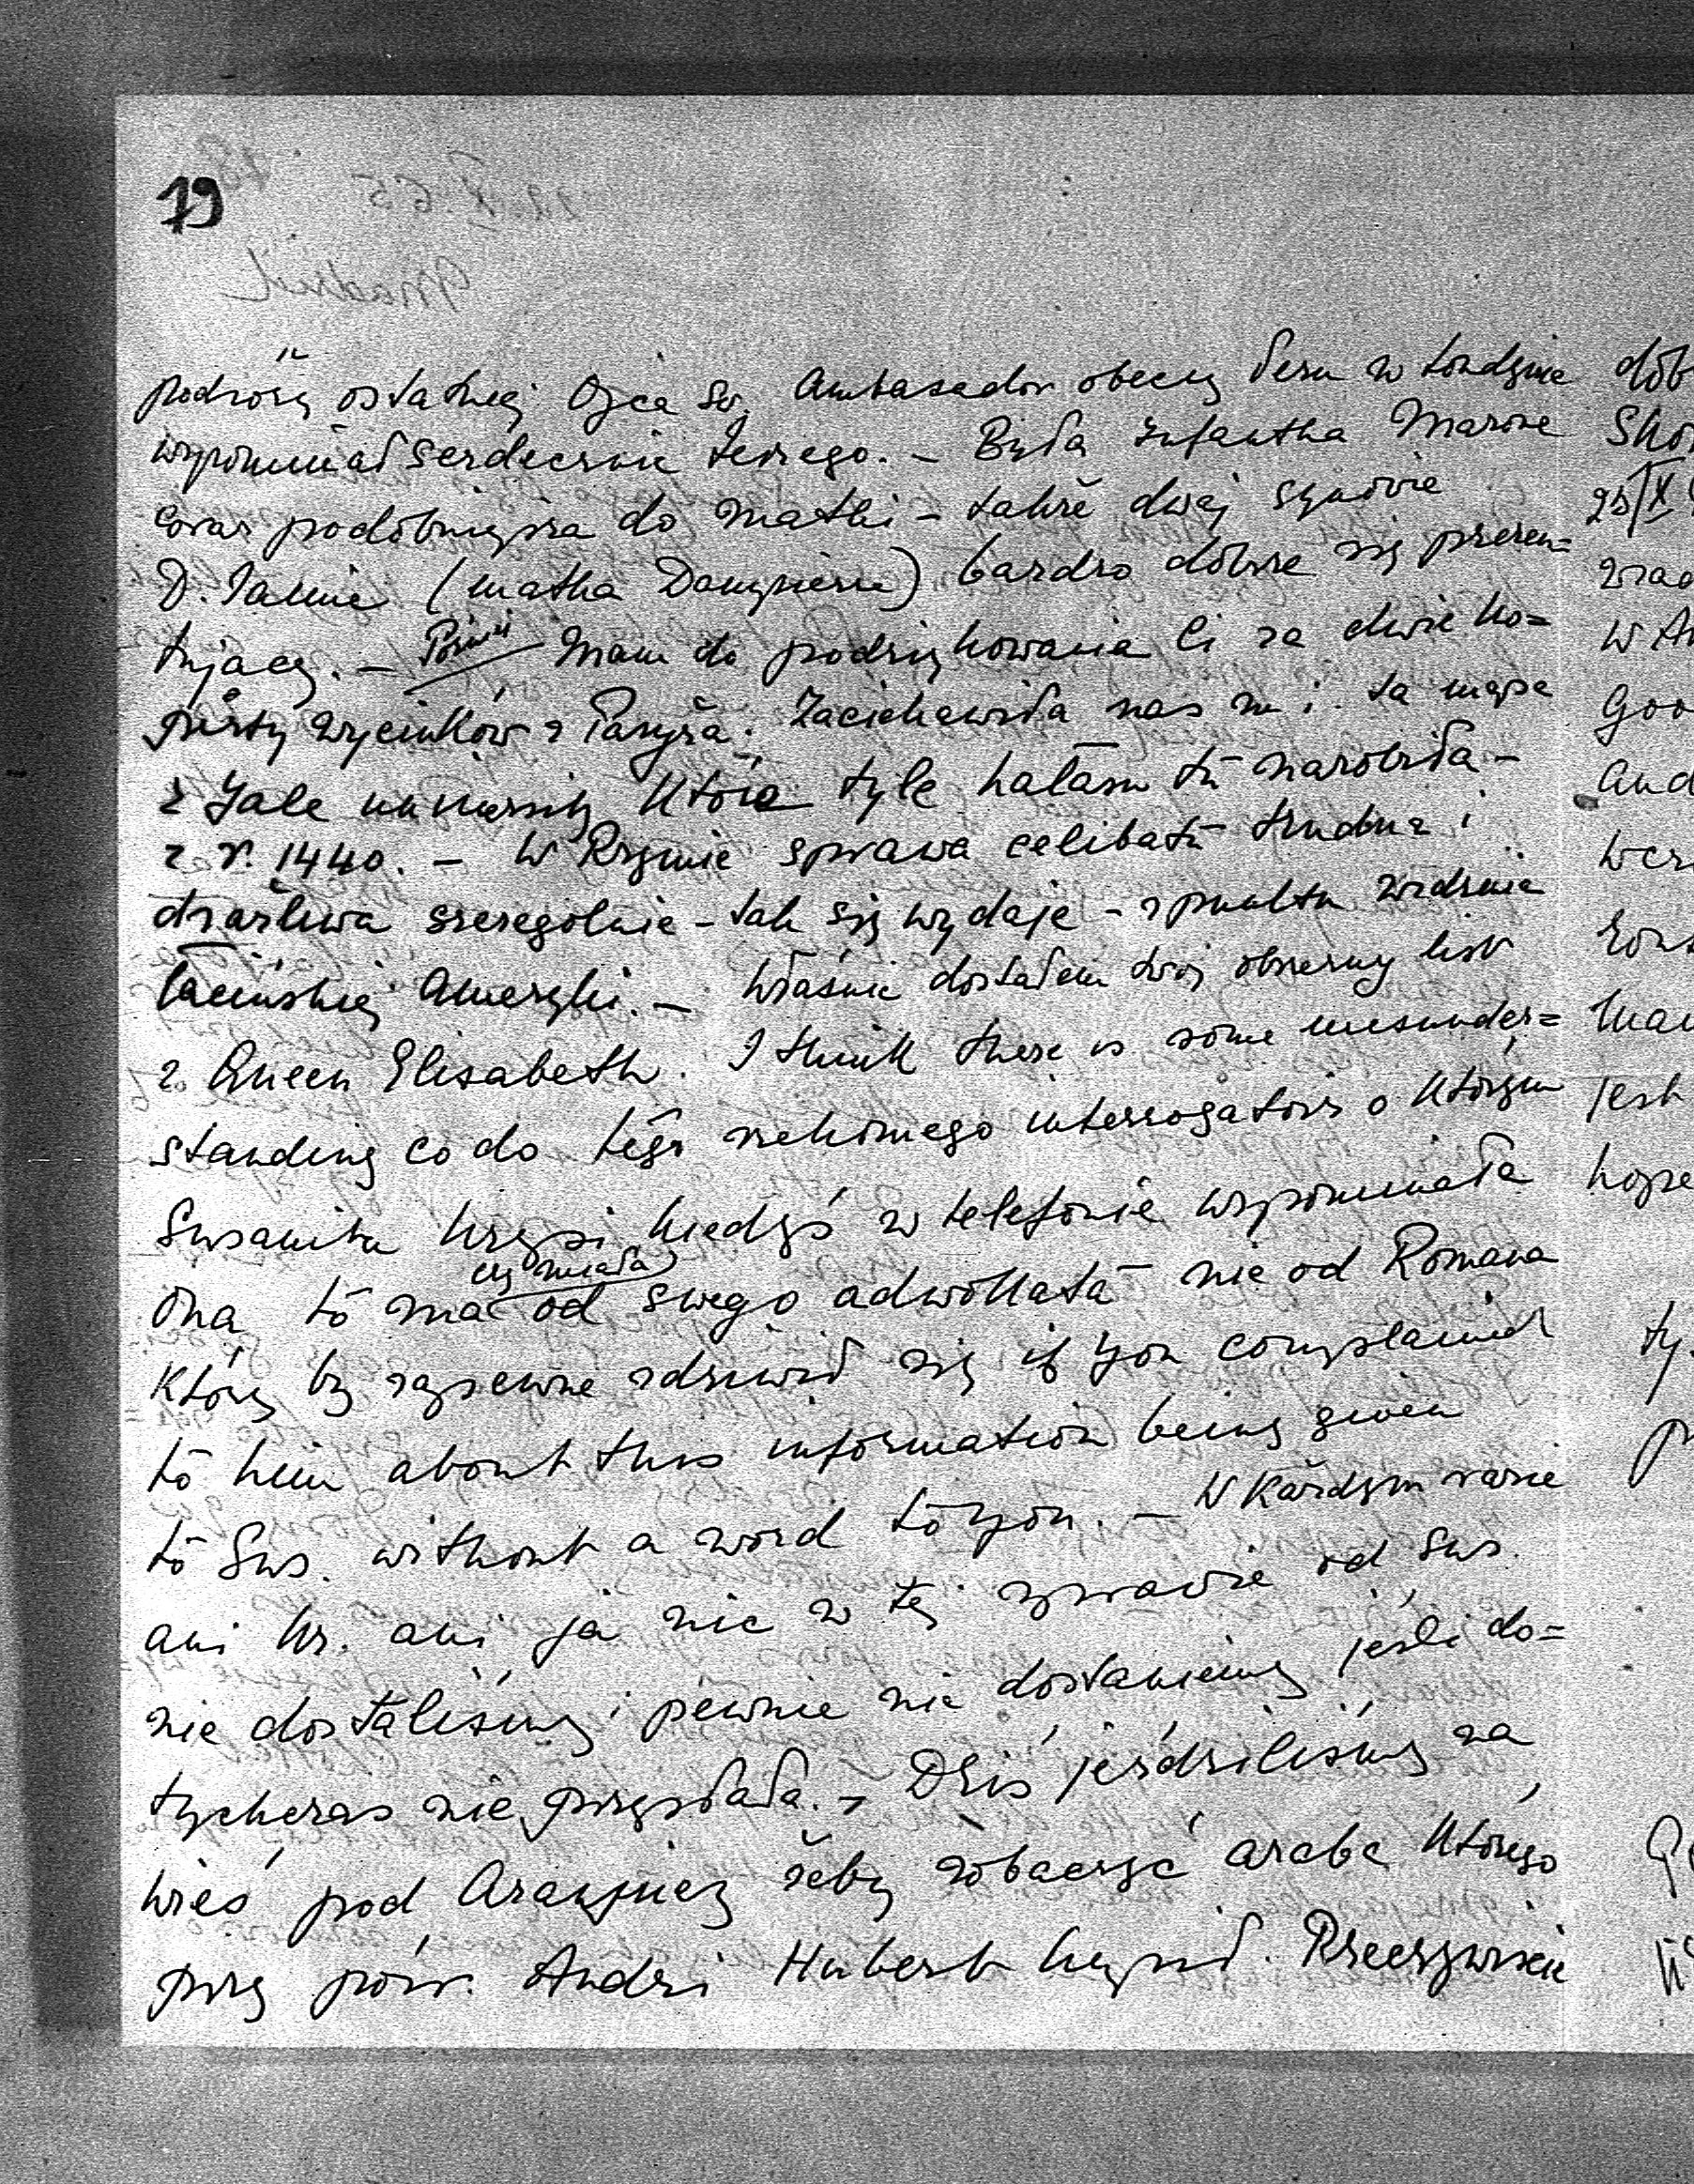 79
podróży ostatniej Ojca św. Ambasador obecny Peru w Londynie
wspominał serdecznie Jerzego. – Była Infantka Marone
coraz podobniejsza do matki – także dwaj synowie
D. Jaime (matka Dampierre) bardzo dobrze się prezen=
tujący. – Mam do podziękowania Ci za dwie ko=
perty wycinków z Paryża. Zaciekawiła nas m i. ta mapa
z Yale university która tyle hałasu tu narobiła –
z r. 1440. – W Rzymie sprawa celibatu trudna i
drażliwa szczególnie – tak się wydaje – z punktu widzenia
łacińskiej Ameryki. – Właśnie dostałem twój obszerny list
z Queen Elisabeth. I think there is some misunder=
standing co do tego rzekomego interrogatoir o którym
Susanita Krzysi kiedyś w telefonie wspominała
czy miała
Ona to ma od swego adwokata nie od Romana
który by zapewne zdziwił się if you complained
to him about this information being given
to Sus. without a word to you. – W każdym razie
ani Kr. ani ja nic w tej sprawie od Sus.
nie dostaliśmy i pewnie nie dostaniemy jeśli do=
tychczas nie przysłała. – Dziś jeździliśmy na
wieś pod Aranjuez żeby zobaczyć araba którego
przy pośr. Andzi Hubert kupił. Rzeczywiście